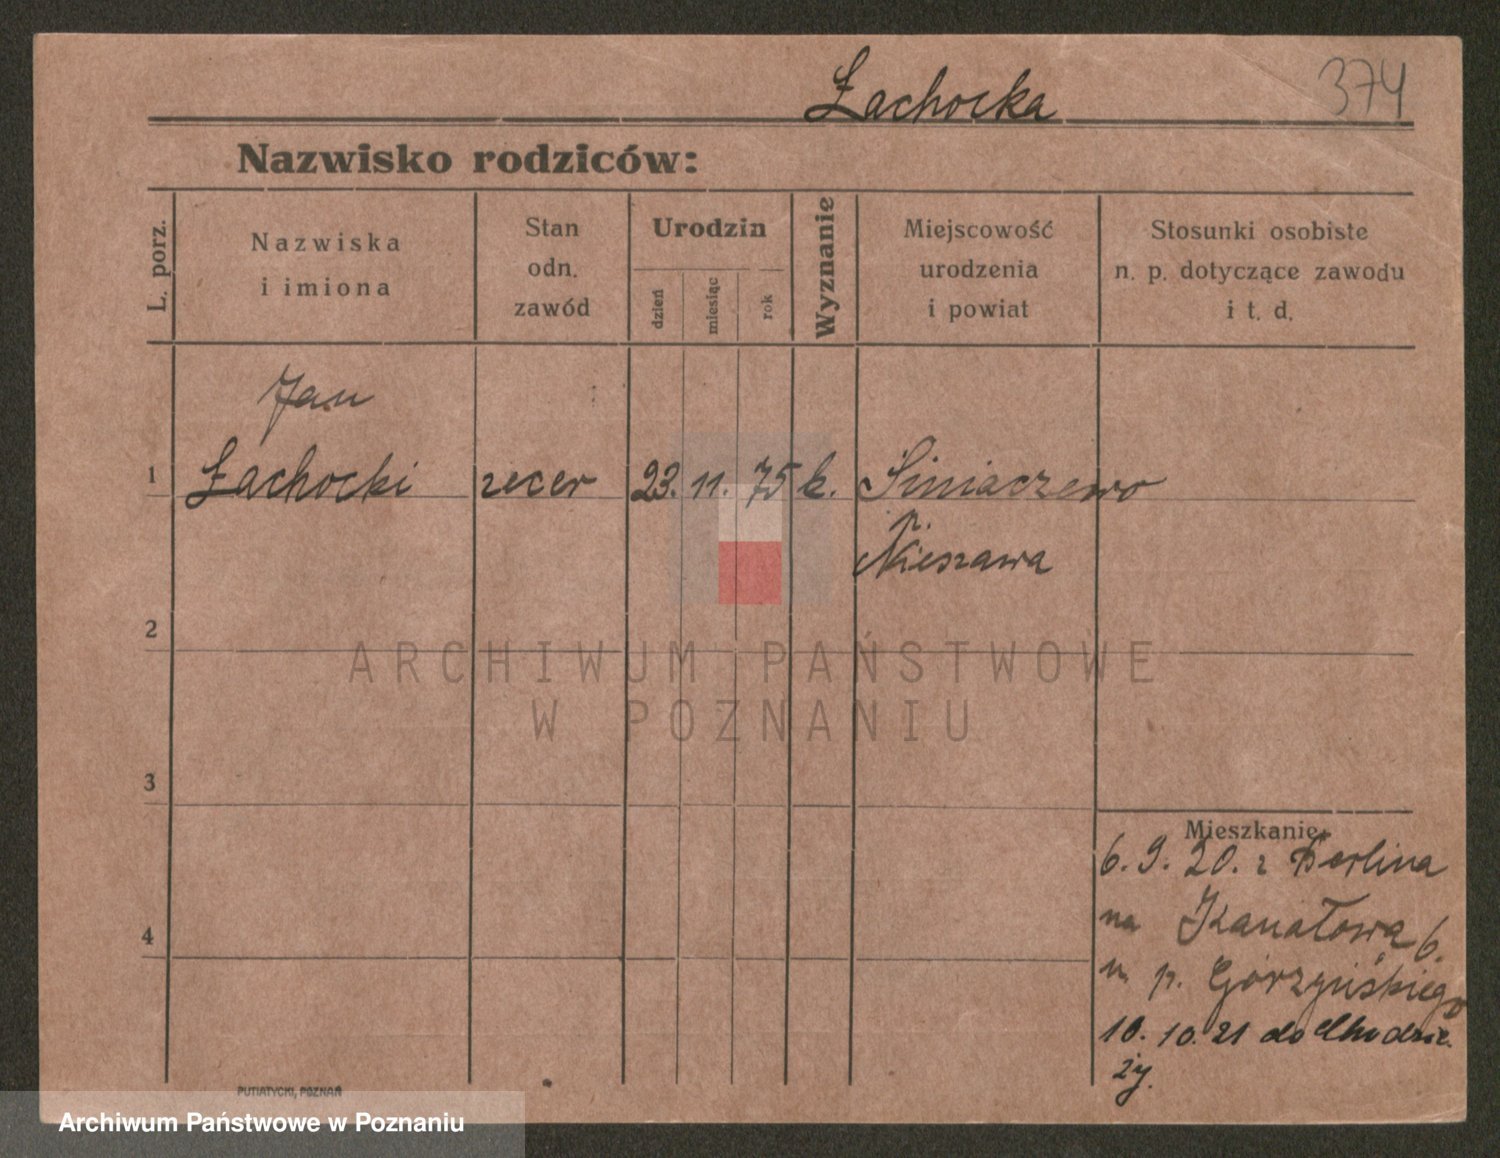 Łachocka
374
Nazwisko rodziców:
L. porz.
Nazwiska
i imiona
Stan
odn.
zawód
Urodzin
dzień
miesiąc
rok
Wyznanie
Miejscowość
urodzenia
i powiat
Stosunki osobiste
n. p. dotyczące zawodu
i t. d.
Jan
1 Łachocki zecer 23. 11. 75 k. Siniaczewo
p.
Nieszawa
2
3
4
Mieszkanie
6. 9. 20. z Berlina
na Kanałową 6.
u p. Górzyńskiego
10. 10. 21 do Chodzie-
ży.
PUTIATYCKI, POZNAŃ
ARCHIWUM PAŃSTWOWE
W POZNANIU
Archiwum Państwowe w Poznaniu